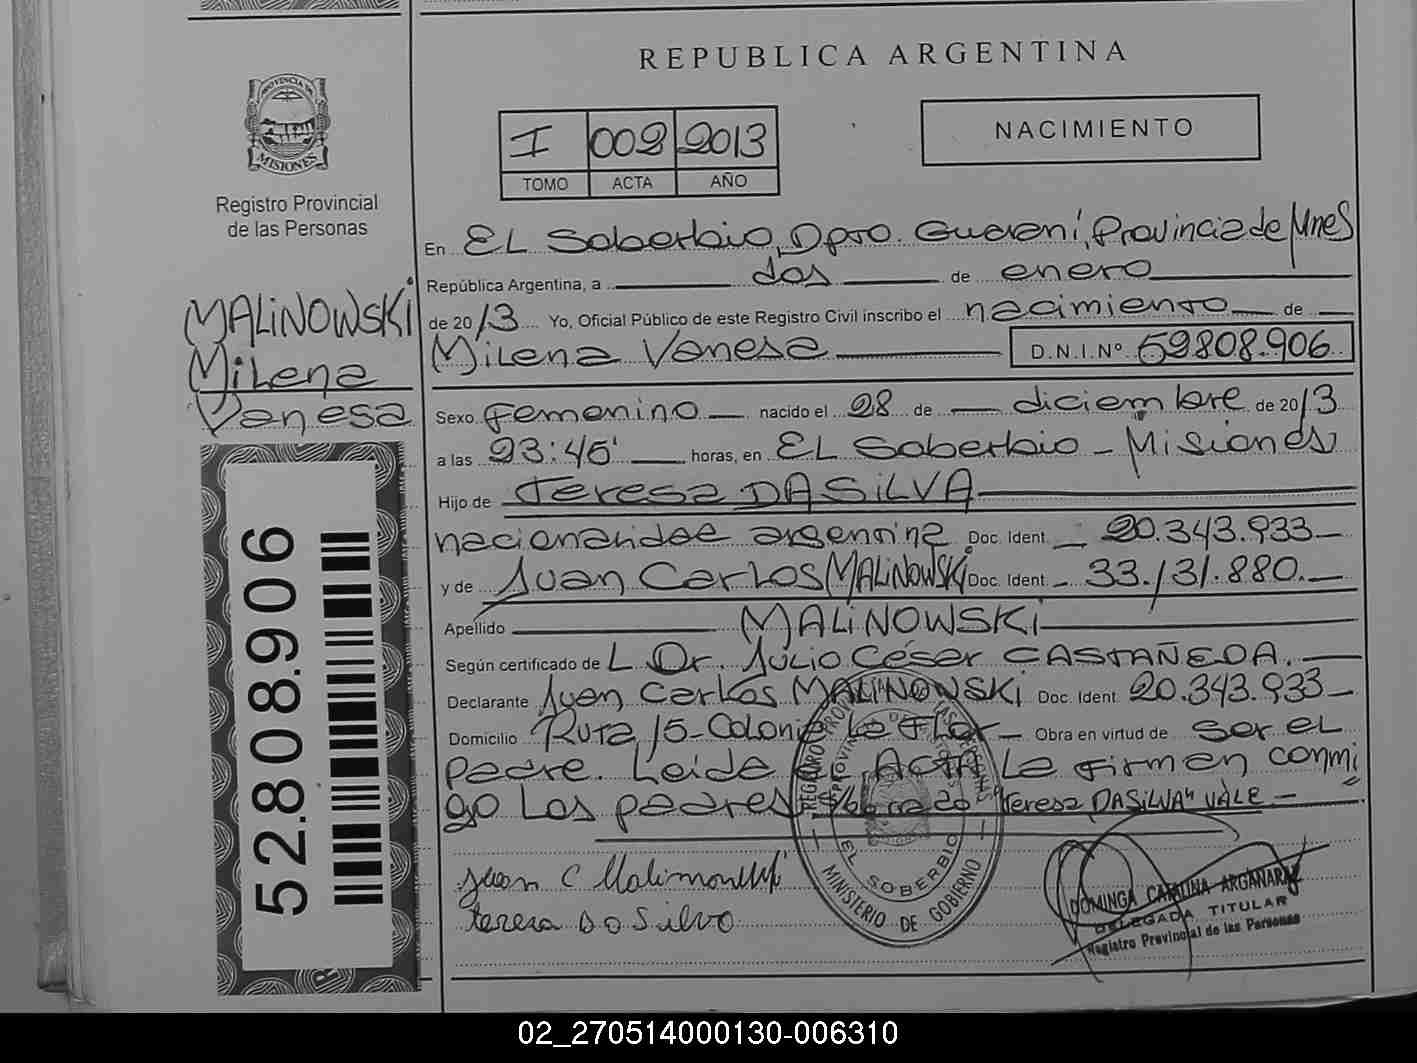 REPUBLICA ARGENTINA
PROVINCIA DE
MISIONES
Registro Provincial
de las Personas
I 002 2013
TOMO ACTA AÑO
NACIMIENTO
En EL Soberbio, Dpto. Guaraní, Provincia de Mnes
República Argentina, a dos de enero
de 2013 Yo, Oficial Público de este Registro Civil inscribo el nacimiento de
MALiNOWSKi
Milena
Vanesa
Milena Vanesa D.N.I.Nº 52808.906
Sexo femenino nacido el 28 de diciembre de 2013
a las 23:45' horas, en EL Soberbio - Misiones
Hijo de Teresa DASiLVA
nacionalidad argentina Doc. Ident. 20.343.933
y de Juan Carlos MALiNOWSKi Doc. Ident. 33.131.880.
Apellido MALiNOWSKi
Según certificado de L Dr. Julio César CASTAÑEDA.
Declarante Juan Carlos MALiNOWSKi Doc. Ident. 20.343.933
Domicilio Ruta 15-Colonia La Flor Obra en virtud de Ser el
padre. Leida el ACTA La firman conmi
go Los padres "Teresa DASiLVA" VALE.
52.808.906
Juan C Malinowski
teresa Da Silva
REGISTRO PROVINCIAL DE LAS PERSONAS
EL SOBERBIO
MINISTERIO DE GOBIERNO
DOMINGA CATALINA ARGAÑARAZ
DELEGADA TITULAR
Registro Provincial de las Personas
02_270514000130-006310